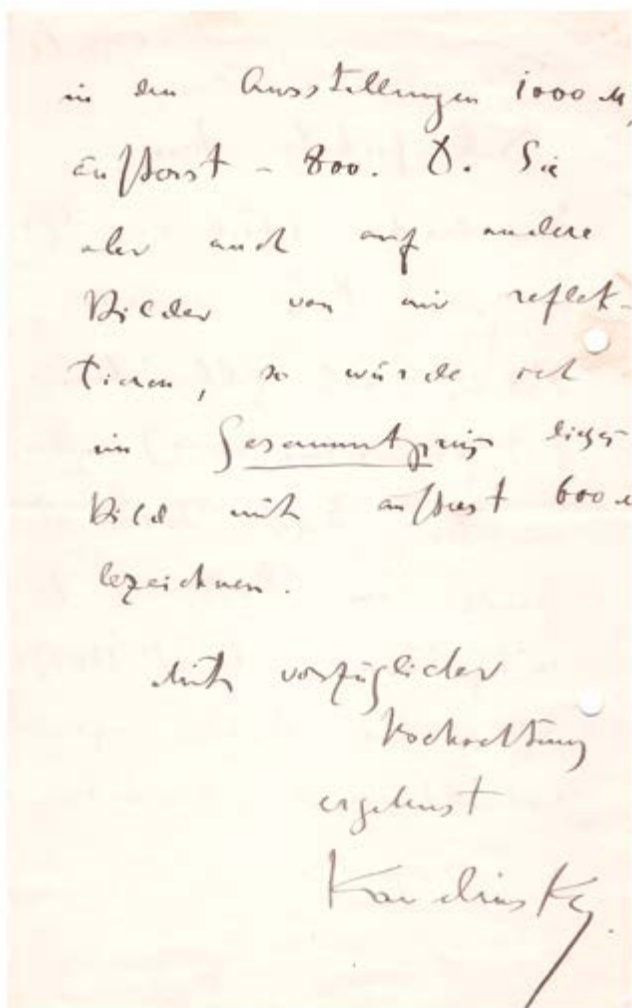 in den Ausstellungen 1000 M,
äußerst – 800. D. Sie
aber auch auf andere
Bilder von mir reflek-
tieren, so würde ich
im Gesammtpreis dieses
Bild mit äußerst 600 M
bezeichnen.
Mit vorzüglicher
Hochachtung
ergebenst
Kandinsky.